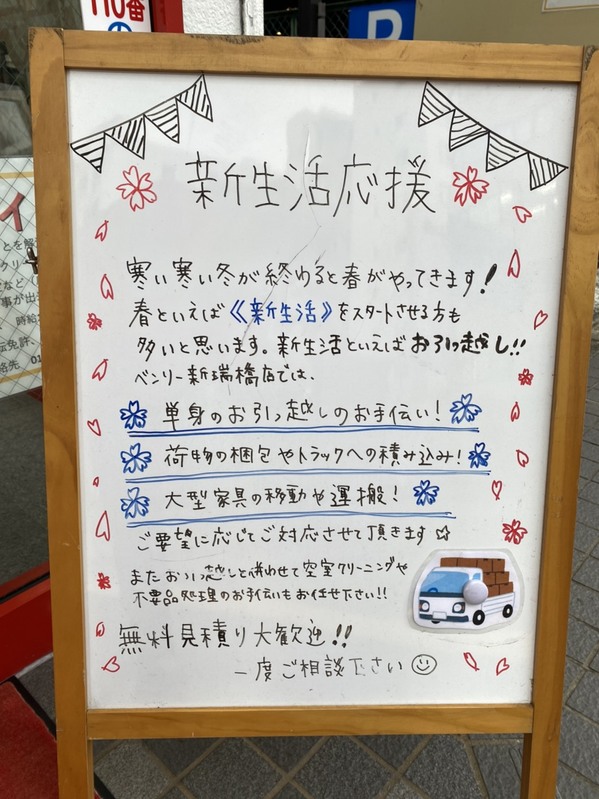 110番
の
P
新生活応援
寒い寒い冬が終わると春がやってきます!
春といえば《新生活》をスタートさせる方も
多いと思います。新生活といえばお引っ越し!!
ベンリー新瑞橋店では、
単身のお引っ越しのお手伝い!
荷物の梱包やトラックへの積み込み!
大型家具の移動や運搬!
ご要望に応じてご対応させて頂きます☆
またお引っ越しと併わせて空室クリーニングや
不要品処理のお手伝いもお任せ下さい!!
無料見積り大歓迎!!
一度ご相談下さい☺